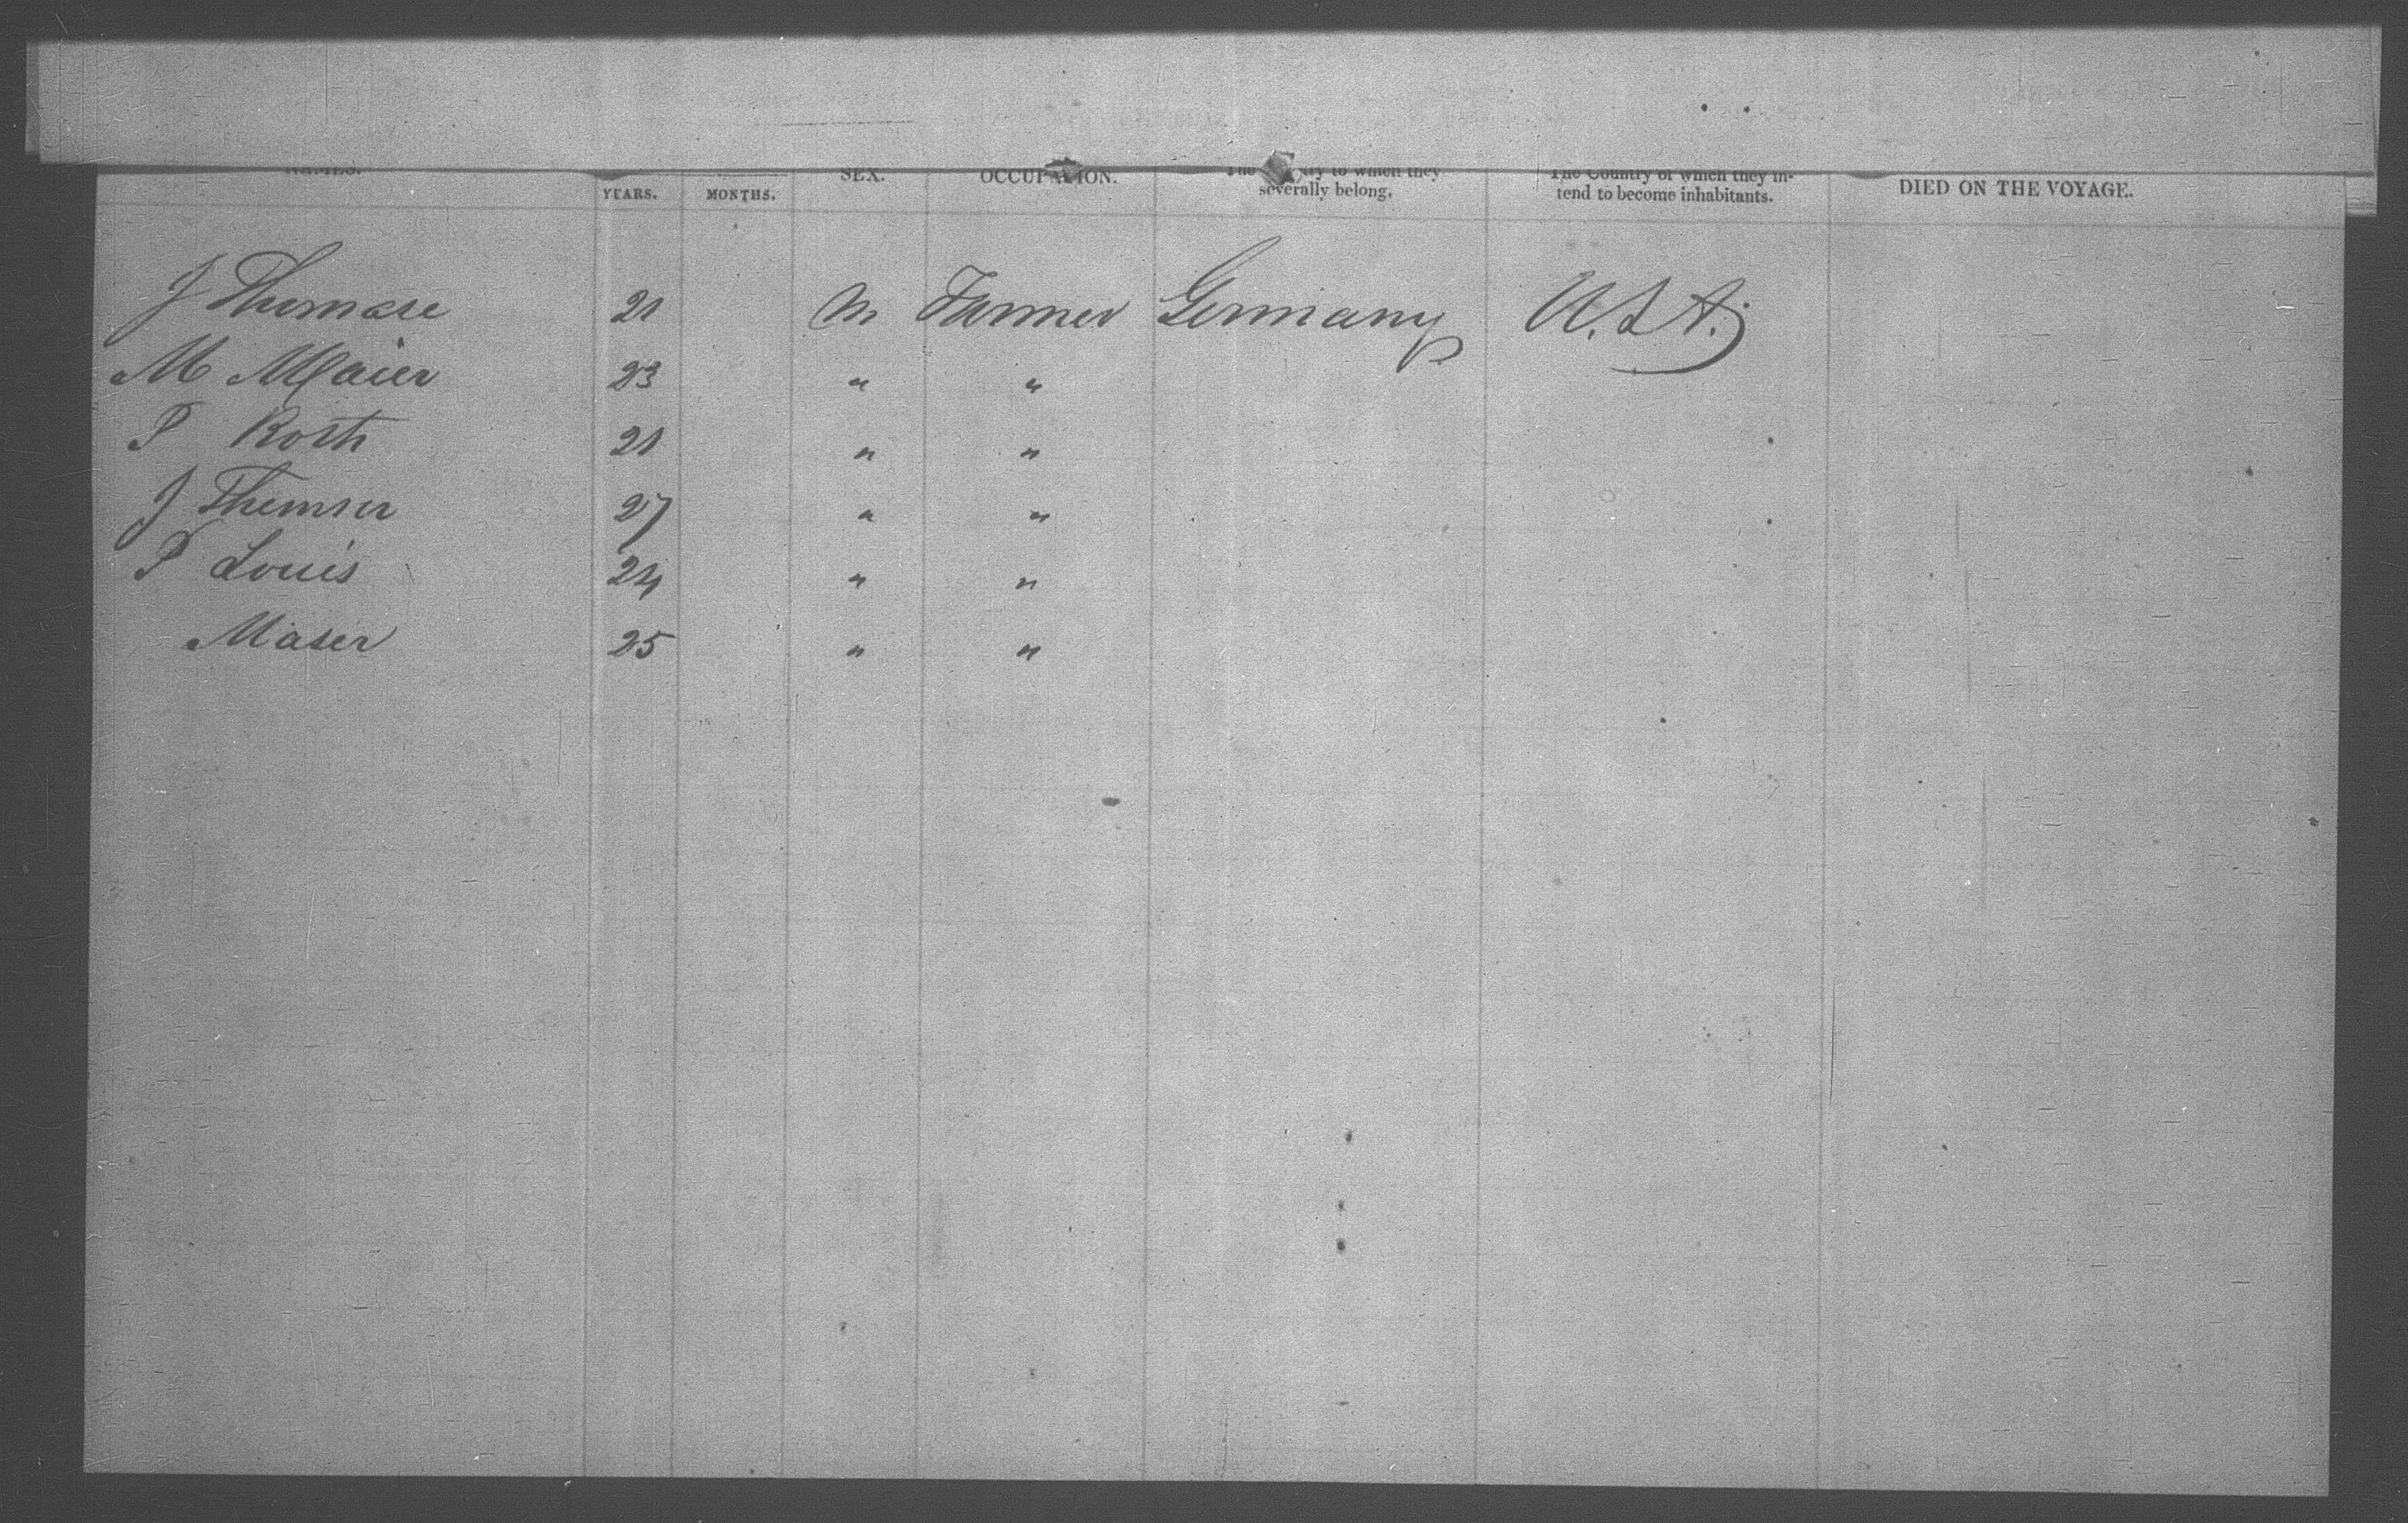 NAMES. SEX. OCCUPATION. The Country to which they The Country of which they in-
YEARS. MONTHS. severally belong. tend to become inhabitants. DIED ON THE VOYAGE.
J 21 M Farmer Germany U.S.A.
M Maier 23 " "
P Roth 21 " "
J 27 " "
P Louis 24 " "
Maser 25 " "